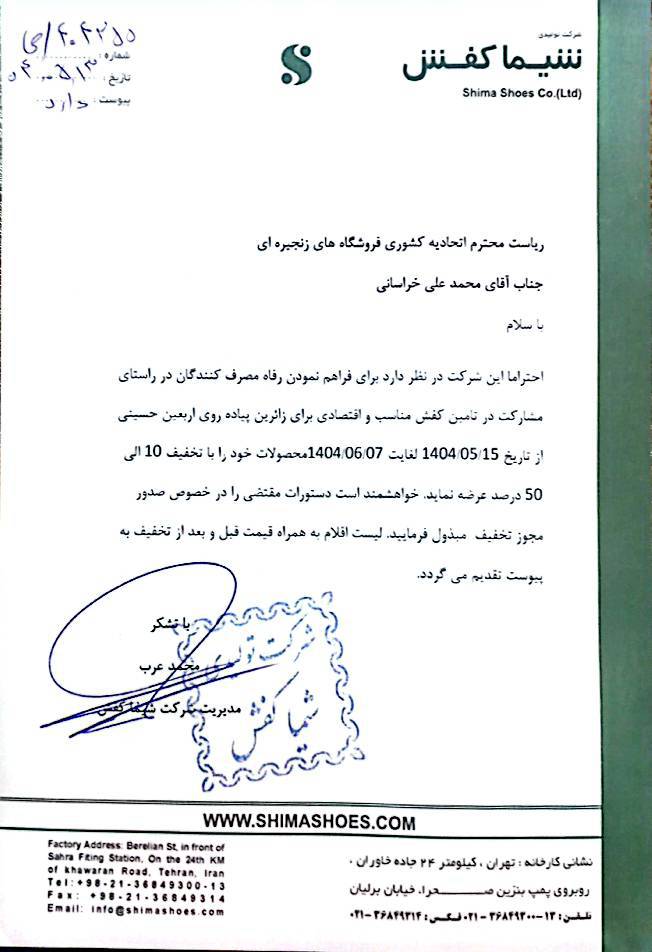 شرکت تولیدی
شیما کفش
Shima Shoes Co.(Ltd)
شماره :
تاریخ :
پیوست : دارد
ریاست محترم اتحادیه کشوری فروشگاه های زنجیره ای
جناب آقای محمد علی خراسانی
با سلام
احتراما این شرکت در نظر دارد برای فراهم نمودن رفاه مصرف کنندگان در راستای
مشارکت در تامین کفش مناسب و اقتصادی برای زائرین پیاده روی اربعین حسینی
از تاریخ 1404/05/15 لغایت 1404/06/07محصولات خود را با تخفیف 10 الی
50 درصد عرضه نماید. خواهشمند است دستورات مقتضی را در خصوص صدور
مجوز تخفیف مبذول فرمایید. لیست اقلام به همراه قیمت قبل و بعد از تخفیف به
پیوست تقدیم می گردد.
با تشکر
محمد عرب
مدیریت شرکت شیما کفش
شرکت تولیدی
شیما کفش
WWW.SHIMASHOES.COM
Factory Address: Berelian St, in front of
Sahra Fiting Station, On the 24th KM
of khawaran Road, Tehran, Iran
Tel:+98-21-36849300-13
Fax: +98-21-36849314
Email: info@shimashoes.com
نشانی کارخانه : تهران ، کیلومتر ۲۴ جاده خاوران ،
روبروی پمپ بنزین صحرا، خیابان برلیان
تلفن: ۱۳-۳۶۸۴۹۳۰۰-۰۲۱ فکس: ۳۶۸۴۹۳۱۴-۰۲۱